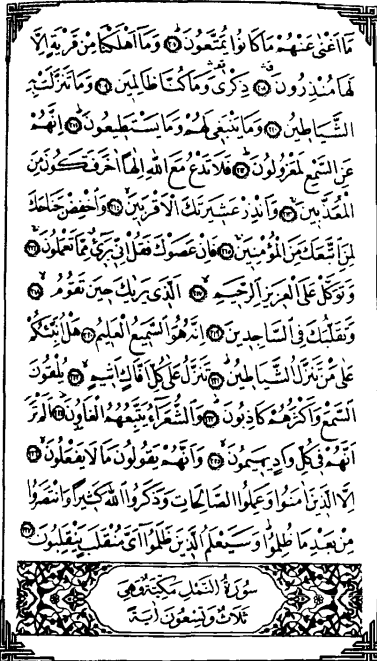 مَٓا اَغْنٰى عَنْهُمْ مَا كَانُوا يُمَتَّعُونَۜ ﴿٢٠٧﴾ وَمَٓا اَهْلَكْنَا مِنْ قَرْيَةٍ اِلَّا
لَهَا مُنْذِرُونَ ﴿٢٠٨﴾ ذِكْرٰى وَمَا كُنَّا ظَالِمٖينَ ﴿٢٠٩﴾ وَمَا تَنَزَّلَتْ بِهِ
الشَّيَاطٖينُ ﴿٢١٠﴾ وَمَا يَنْبَغٖى لَهُمْ وَمَا يَسْتَطٖيعُونَ ﴿٢١١﴾ اِنَّهُمْ
عَنِ السَّمْعِ لَمَعْزُولُونَ ﴿٢١٢﴾ فَلَا تَدْعُ مَعَ اللّٰهِ اِلٰهًا اٰخَرَ فَتَكُونَ مِنَ
الْمُعَذَّبٖينَ ﴿٢١٣﴾ وَاَنْذِرْ عَشٖيرَتَكَ الْاَقْرَبٖينَ ﴿٢١٤﴾ وَاخْفِضْ جَنَاحَكَ
لِمَنِ اتَّبَعَكَ مِنَ الْمُؤْمِنٖينَ ﴿٢١٥﴾ فَاِنْ عَصَوْكَ فَقُلْ اِنّٖى بَرٖٓىءٌ مِمَّا تَعْمَلُونَ ﴿٢١٦﴾
وَتَوَكَّلْ عَلَى الْعَزٖيزِ الرَّحٖيمِ ﴿٢١٧﴾ اَلَّذٖى يَرٰيكَ حٖينَ تَقُومُ ﴿٢١٨﴾
وَتَقَلُّبَكَ فِى السَّاجِدٖينَ ﴿٢١٩﴾ اِنَّهُ هُوَ السَّمٖيعُ الْعَلٖيمُ ﴿٢٢٠﴾ هَلْ اُنَبِّئُكُمْ
عَلٰى مَنْ تَنَزَّلُ الشَّيَاطٖينُ ﴿٢٢١﴾ تَنَزَّلُ عَلٰى كُلِّ اَفَّاكٍ اَثٖيمٍ ﴿٢٢٢﴾ يُلْقُونَ
السَّمْعَ وَاَكْثَرُهُمْ كَاذِبُونَ ﴿٢٢٣﴾ وَالشُّعَرَٓاءُ يَتَّبِعُهُمُ الْغَاوُنَ ﴿٢٢٤﴾ اَلَمْ تَرَ
اَنَّهُمْ فٖى كُلِّ وَادٍ يَهٖيمُونَ ﴿٢٢٥﴾ وَاَنَّهُمْ يَقُولُونَ مَا لَا يَفْعَلُونَ ﴿٢٢٦﴾
اِلَّا الَّذٖينَ اٰمَنُوا وَعَمِلُوا الصَّالِحَاتِ وَذَكَرُوا اللّٰهَ كَثٖيرًا وَانْتَصَرُوا
مِنْ بَعْدِ مَا ظُلِمُوا وَسَيَعْلَمُ الَّذٖينَ ظَلَمُٓوا اَىَّ مُنْقَلَبٍ يَنْقَلِبُونَ ﴿٢٢٧﴾
سُورَةُ النَّمْلِ مَكِّيَّةٌ وَهِىَ
ثَلَاثٌ وَتِسْعُونَ اٰيَةً